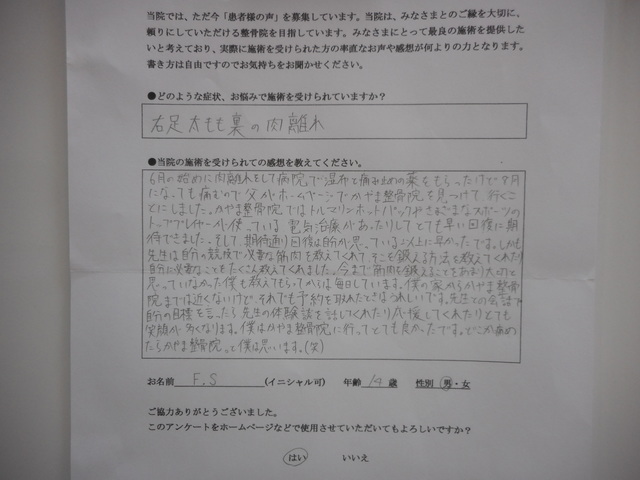 当院では、ただ今「患者様の声」を募集しています。当院は、みなさまとのご縁を大切に、
頼りにしていただける整骨院を目指しています。みなさまにとって最良の施術を提供した
いと考えており、実際に施術を受けられた方の率直なお声や感想が何よりの力となります。
書き方は自由ですのでお気持ちをお聞かせください。
●どのような症状、お悩みで施術を受けられていますか？
右足太もも裏の肉離れ
●当院の施術を受けられての感想を教えてください。
6月の始めに肉離れをして病院で湿布と痛み止めの薬をもらったけど7月
になっても痛むので父がホームページでかやま整骨院を見つけて行くこ
とにしました。かやま整骨院ではトルマリンホットパックやさまざまなスポーツの
トッププレイヤーが使っている電気治療があったりしてとても早い回復に期
待できました。そして、期待通り回復は自分が思っている以上に早かったです。しかも
先生は自分の競技で必要な筋肉を教えてくれて、そこを鍛える方法を教えてくれたり
自分に必要なことをたくさん教えてくれました。今まで筋肉を鍛えることをあまり大切と
思っていなかった僕も教えてもらってからは毎日しています。僕の家からかやま整骨
院までは近くないけど、それでも予約を取れたときはうれしいです。先生との会話で
自分の目標を言ったら先生の体験談を話してくれたり応援してくれたりとても
笑顔が多くなります。僕はかやま整骨院に行ってとても良かったです。どこか痛め
たらかやま整骨院って僕は思います。(笑)
お名前 F.S (イニシャル可) 年齢 14 歳 性別 男・女
ご協力ありがとうございました。
このアンケートをホームページなどで使用させていただいてもよろしいですか？
はい いいえ